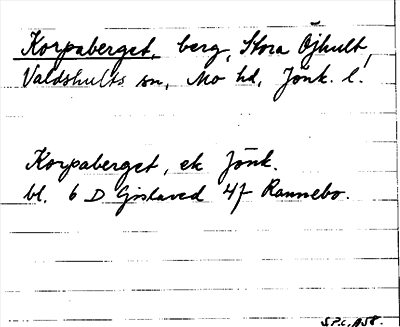 Korpaberget, berg, Stora Öjhult,
Valdshults sn, Mo hd, Jönk. l.
Korpaberget, ek Jönk.
bl. 6 D Gislaved 4f Rannebo.
S.P.C. A58.